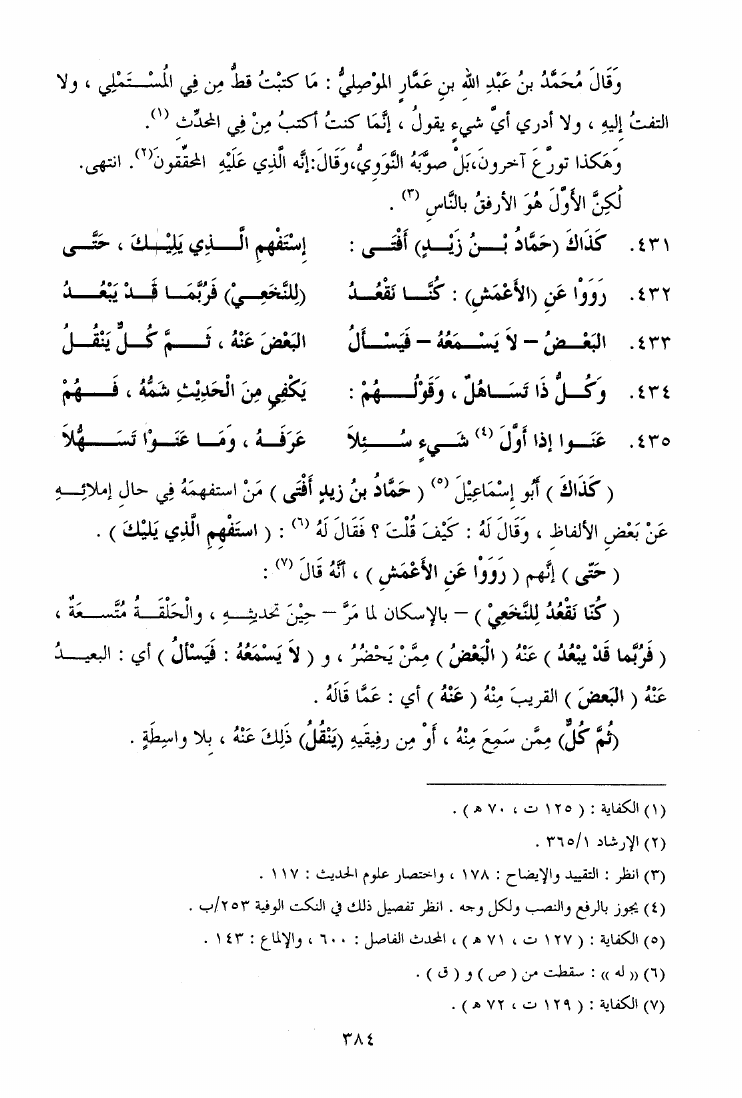 وَقَالَ مُحَمَّدُ بنُ عَبْدِ اللهِ بنِ عَمَّارٍ الموْصِليُّ : مَا كتبْتُ قطُّ مِن فِي المُسْتَمْلِي ، ولا
التفتُ إليهِ ، ولا أدري أيَّ شيءٍ يقولُ ، إنَّمَا كنتُ أكتبُ مِنْ فِي المحدِّث (١).
وَهكذا تورَّعَ آخرونَ،بَلْ صوَّبَهُ النَّوَويُّ،وَقَالَ:إنَّه الَّذِي عَلَيْهِ المحقّقونَ(٢). انتهى.
لَكِنَّ الأوَّلَ هُوَ الأرفقُ بالنَّاسِ (٣) .
٤٣١. كَذَاكَ (حَمَّادُ بْنُ زَيْدٍ) أَفْتَى : إسْتَفْهِمِ الَّذِي يَلِيْكَ ، حَتَّى
٤٣٢. رَوَوْا عَنِ (الأَعْمَشِ) : كُنَّا نَقْعُدُ (لِلنَّخَعِيْ) فَرُبَّمَا قَدْ يَبْعُدُ
٤٣٣. البَعْضُ – لاَ يَسْمَعُهُ – فَيَسْأَلُ البَعْضَ عَنْهُ ، ثُمَّ كُلٌّ يَنْقُلُ
٤٣٤. وَكُلُّ ذَا تَسَاهُلٌ ، وَقَوْلُهُمْ : يَكْفِي مِنَ الْحَدِيْثِ شَمُّهُ ، فَهُمْ
٤٣٥. عَنَوا إذا أوَّلَ (٤) شَيءٍ سُئِلاَ عَرَفَهُ ، وَمَا عَنَوْا تَسَهُّلاَ
( كَذَاكَ ) أبُو إسْمَاعِيْلَ (٥) ( حَمَّادُ بنُ زيدٍ أَفْتَى ) مَنْ استفهمَهُ فِي حالِ إملائِهِ
عَنْ بَعْضِ الألفاظِ ، وَقَالَ لَهُ : كَيْفَ قُلْتَ ؟ فَقَالَ لَهُ (٦) : ( استَفْهِمِ الَّذِي يَليْكَ ) .
( حَتَّى ) إنَّهم ( رَوَوْا عَنِ الأَعْمَشِ ) ، أنَّهُ قَالَ (٧) :
( كُنَّا نَقْعُدُ لِلنَّخَعِيْ ) – بالإسكان لما مَرَّ – حِيْنَ تحديثِهِ ، والْحَلْقَةُ مُتَّسعَةٌ ،
( فَرُبَّما قَدْ يَبْعُدُ ) عَنْهُ ( الْبَعْضُ ) مِمَّنْ يَحْضُرُ ، و ( لاَ يَسْمَعُهُ : فَيَسْألُ ) أي : البعيدُ
عَنْهُ ( البَعضَ ) القريبَ مِنْهُ ( عَنْهُ ) أي : عَمَّا قَالَهُ .
(ثُمَّ كُلٌّ) مِمَّن سَمِعَ مِنْهُ ، أَوْ مِن رفِيقَيهِ (يَنْقُلُ) ذَلِكَ عَنْهُ ، بِلا واسِطَةٍ .
(١) الكفاية : ( ١٢٥ ت ، ٧٠ ه ) .
(٢) الإرشاد ٣٦٥/١ .
(٣) انظر : التقييد والإيضاح : ١٧٨ ، واختصار علوم الحديث : ١١٧ .
(٤) يجوز بالرفع والنصب ولكل وجه . انظر تفصيل ذلك في النكت الوفية ٢٥٣/ب .
(٥) الكفاية : ( ١٢٧ ت ، ٧١ ه ) ، المحدث الفاصل : ٦٠٠ ، والإلماع : ١٤٣ .
(٦) (( له )) : سقطت من ( ص ) و ( ق ) .
(٧) الكفاية : ( ١٢٩ ت ، ٧٢ ه ) .
٣٨٤